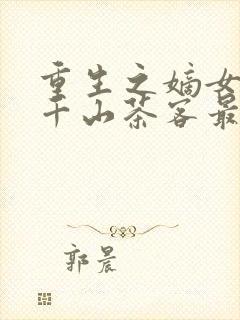 重生之嫡女
千山茶客最
郭晨